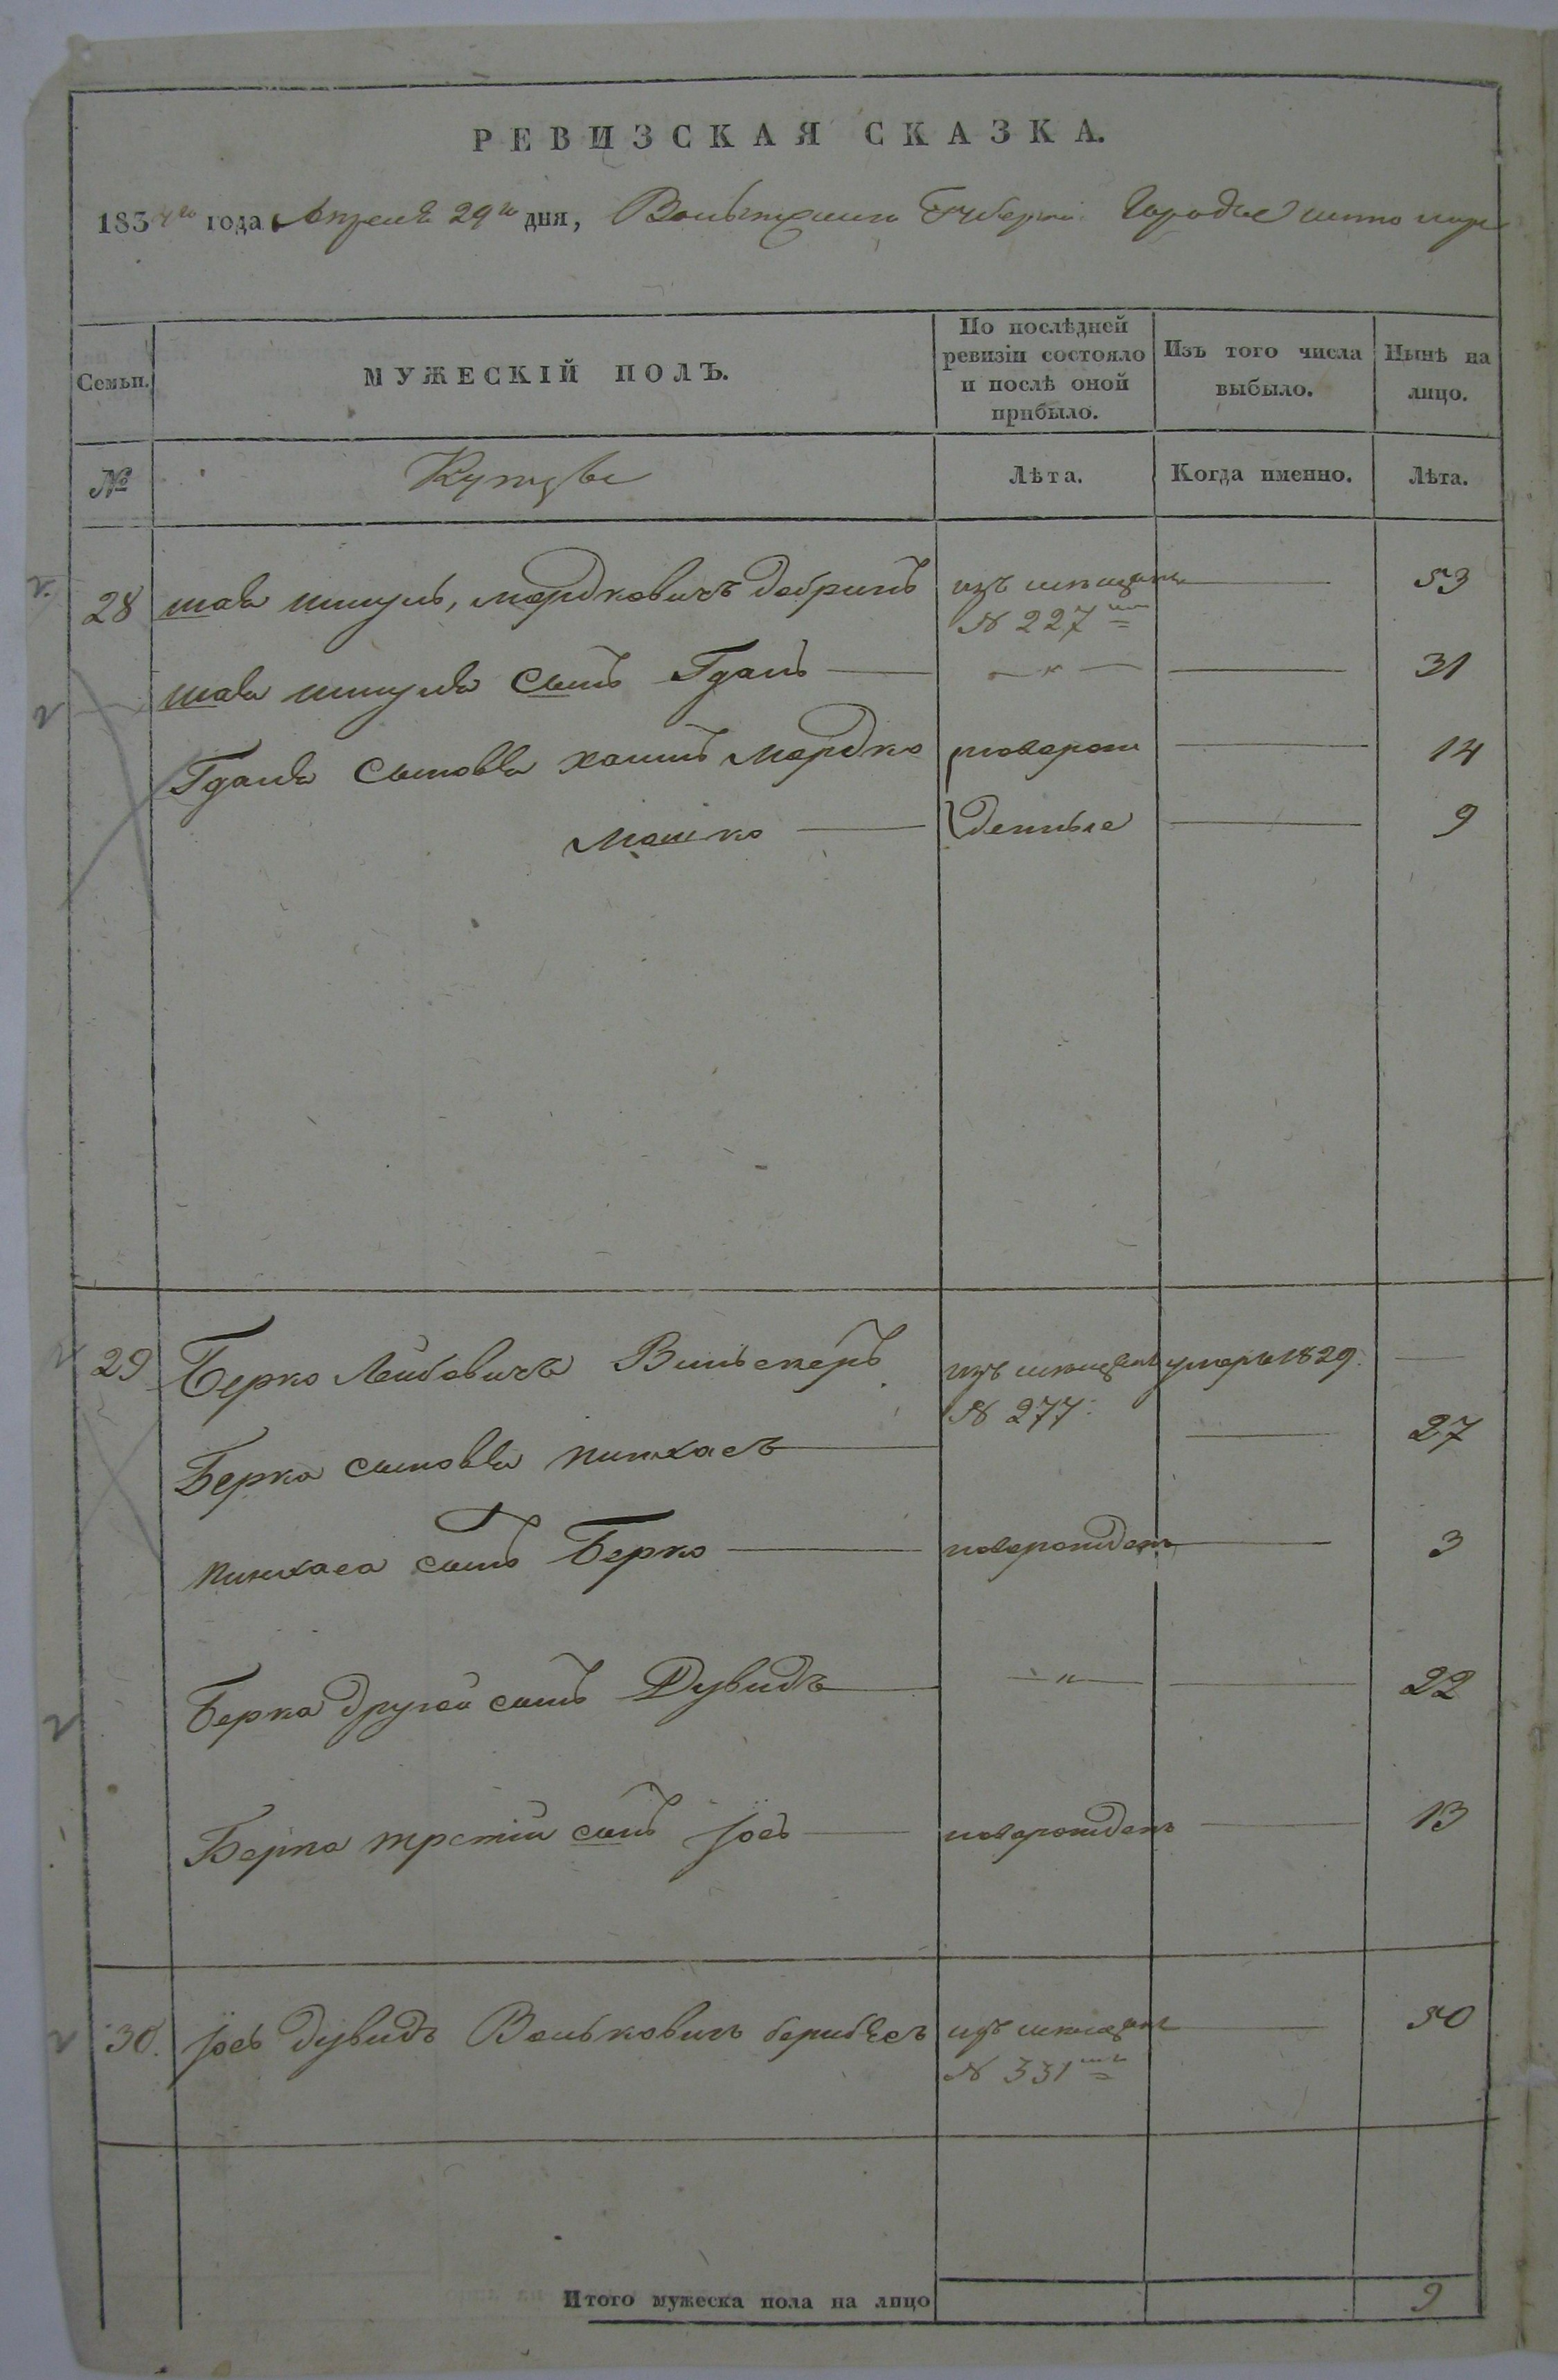 РЕВИЗСКАЯ СКАЗКА.
1834го года Апреля 29го дня, Волынской Губернии Города
Семьи.
МУЖЕСКІЙ ПОЛЪ.
По послѣдней ревизіи состояло и послѣ оной прибыло.
Изъ того числа выбыло.
Нынѣ на лицо.
№
Купцы
Лѣта.
Когда именно.
Лѣта.
28 Мордковичъ изъ мещанъ 53
№ 227
сынъ 31
сыновья Мордко новорож 14
Мошко денные 9
29 Берко Лейбовичъ изъ мещанъ умеръ 1829.
№ 277:
Берка сыновья Пинхасъ 27
Пинхаса сынъ Берко новорожденъ 3
Берка другой сынъ Дувидъ — " — 22
Берка третій сынъ Іось новорожденъ 13
30. Іось Дувидъ Вольковичъ изъ мещанъ 50
№ 331
Итого мужеска пола на лицо 9